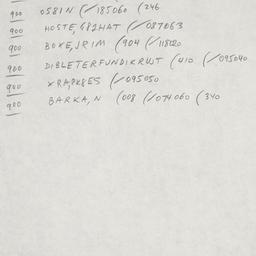 900 0581N (/185060 (246
900 HOSTE, 682HAT (/087063
900 BOXE, JRIM (904 (/118120
900 DIBLETERFUNDIKRWT (410 (/095040
900 XRAPK8ES (/095050
900 BARKA, N (008 (/074060 (340